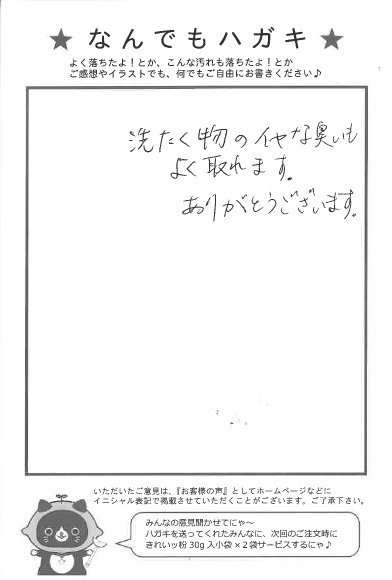 ★ なんでもハガキ ★
よく落ちたよ！とか、こんな汚れも落ちたよ！とか
ご感想やイラストでも、何でもご自由にお書きください♪
洗たく物のイヤな臭いも
よく取れます。
ありがとうございます。
いただいたご意見は、『お客様の声』としてホームページなどに
イニシャル表記で掲載させていただくことがございます。ご了承下さい。
みんなの意見聞かせてにゃ～
ハガキを送ってくれたみんなに、次回のご注文時に
きれいッ粉 30g 入小袋 × 2 袋サービスするにゃ♪